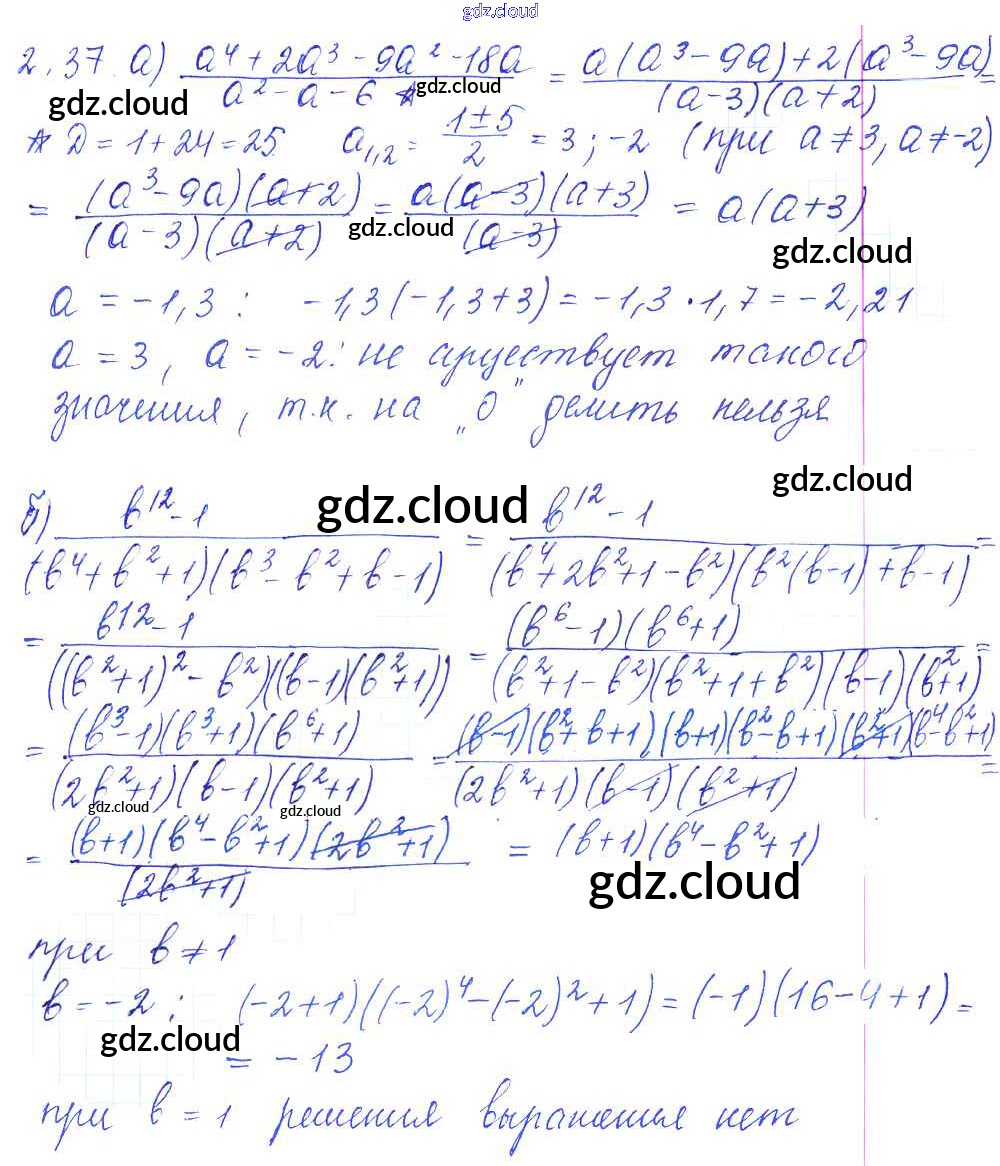 gdz.cloud
2.37 а) (a⁴ + 2a³ - 9a² - 18a)/(a² - a - 6 *) = (a(a³ - 9a) + 2(a³ - 9a))/((a - 3)(a + 2)) =
gdz.cloud gdz.cloud
* D = 1 + 24 = 25 a₁,₂ = (1 ± 5)/2 = 3; -2 (при a ≠ 3, a ≠ -2)
= ((a³ - 9a)(a + 2))/((a - 3)(a + 2)) = (a(a - 3)(a + 3))/((a - 3)) = a(a + 3)
gdz.cloud gdz.cloud
a = -1,3 : -1,3(-1,3 + 3) = -1,3 · 1,7 = -2,21
a = 3, a = -2: не существует такого
значения, т.к. на „0" делить нельзя
gdz.cloud gdz.cloud
б) (b¹² - 1)/((b⁴ + b² + 1)(b³ - b² + b - 1)) = (b¹² - 1)/((b⁴ + 2b² + 1 - b²)(b²(b - 1) + b - 1)) =
= (b¹² - 1)/(((b² + 1)² - b²)((b - 1)(b² + 1))) = ((b⁶ - 1)(b⁶ + 1))/((b² + 1 - b²)(b² + 1 + b²)(b - 1)(b² + 1)) =
= ((b³ - 1)(b³ + 1)(b⁶ + 1))/((2b² + 1)(b - 1)(b² + 1)) = ((b - 1)(b² + b + 1)(b + 1)(b² - b + 1)(b² + 1)(b⁴ - b² + 1))/((2b² + 1)(b - 1)(b² + 1)) =
gdz.cloud gdz.cloud
= ((b + 1)(b⁴ - b² + 1)(2b² + 1))/((2b² + 1)) = (b + 1)(b⁴ - b² + 1)
gdz.cloud
при b ≠ 1
b = -2 ; (-2 + 1)((-2)⁴ - (-2)² + 1) = (-1)(16 - 4 + 1) =
gdz.cloud
= -13
при b = 1 решения выраженья нет